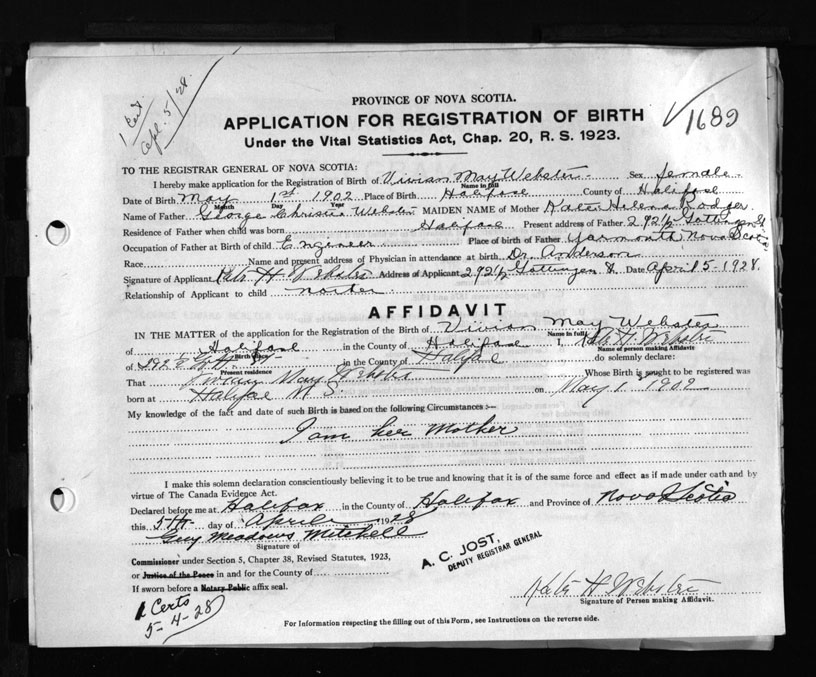 1 Cert.
Sept. 5/28.
1689
PROVINCE OF NOVA SCOTIA.
APPLICATION FOR REGISTRATION OF BIRTH
Under the Vital Statistics Act, Chap. 20, R. S. 1923.
TO THE REGISTRAR GENERAL OF NOVA SCOTIA:
I hereby make application for the Registration of Birth of Vivian May Webster Sex female
Name in full
Date of Birth May 1st 1902 Place of Birth Halifax County of Halifax
Month Day Year
Name of Father George Christie Webster MAIDEN NAME of Mother Kate Helena Rodger
Residence of Father when child was born Halifax Present address of Father 292½ Gottingen St
Occupation of Father at Birth of child Engineer Place of birth of Father Yarmouth Nova Scotia
Race Name and present address of Physician in attendance at birth Dr. Anderson
Signature of Applicant Kate H Webster Address of Applicant 292½ Gottingen St. Date April 5 - 1928.
Relationship of Applicant to child
AFFIDAVIT
IN THE MATTER of the application for the Registration of the Birth of Vivian May Webster
Name in full
of Halifax in the County of Halifax I, Kate H. Webster
Birth place Name of person making Affidavit
of in the County of Halifax do solemnly declare:
Present residence
That Vivian May Webster Whose Birth is sought to be registered was
born at Halifax N. S. on May 1 1902
My knowledge of the fact and date of such Birth is based on the following Circumstances :—
I am her Mother
I make this solemn declaration conscientiously believing it to be true and knowing that it is of the same force and effect as if made under oath and by
virtue of The Canada Evidence Act.
Declared before me at Halifax in the County of Halifax and Province of Nova Scotia
this 5th day of April 1928
Guy Meadows Mitchell
Signature of
A. C. JOST,
DEPUTY REGISTRAR GENERAL
Commissioner under Section 5, Chapter 38, Revised Statutes, 1923,
or Justice of the Peace in and for the County of
If sworn before a Notary Public affix seal.
Kate H Webster
Signature of Person making Affidavit.
Certs
5-4-28
For Information respecting the filling out of this Form, see Instructions on the reverse side.